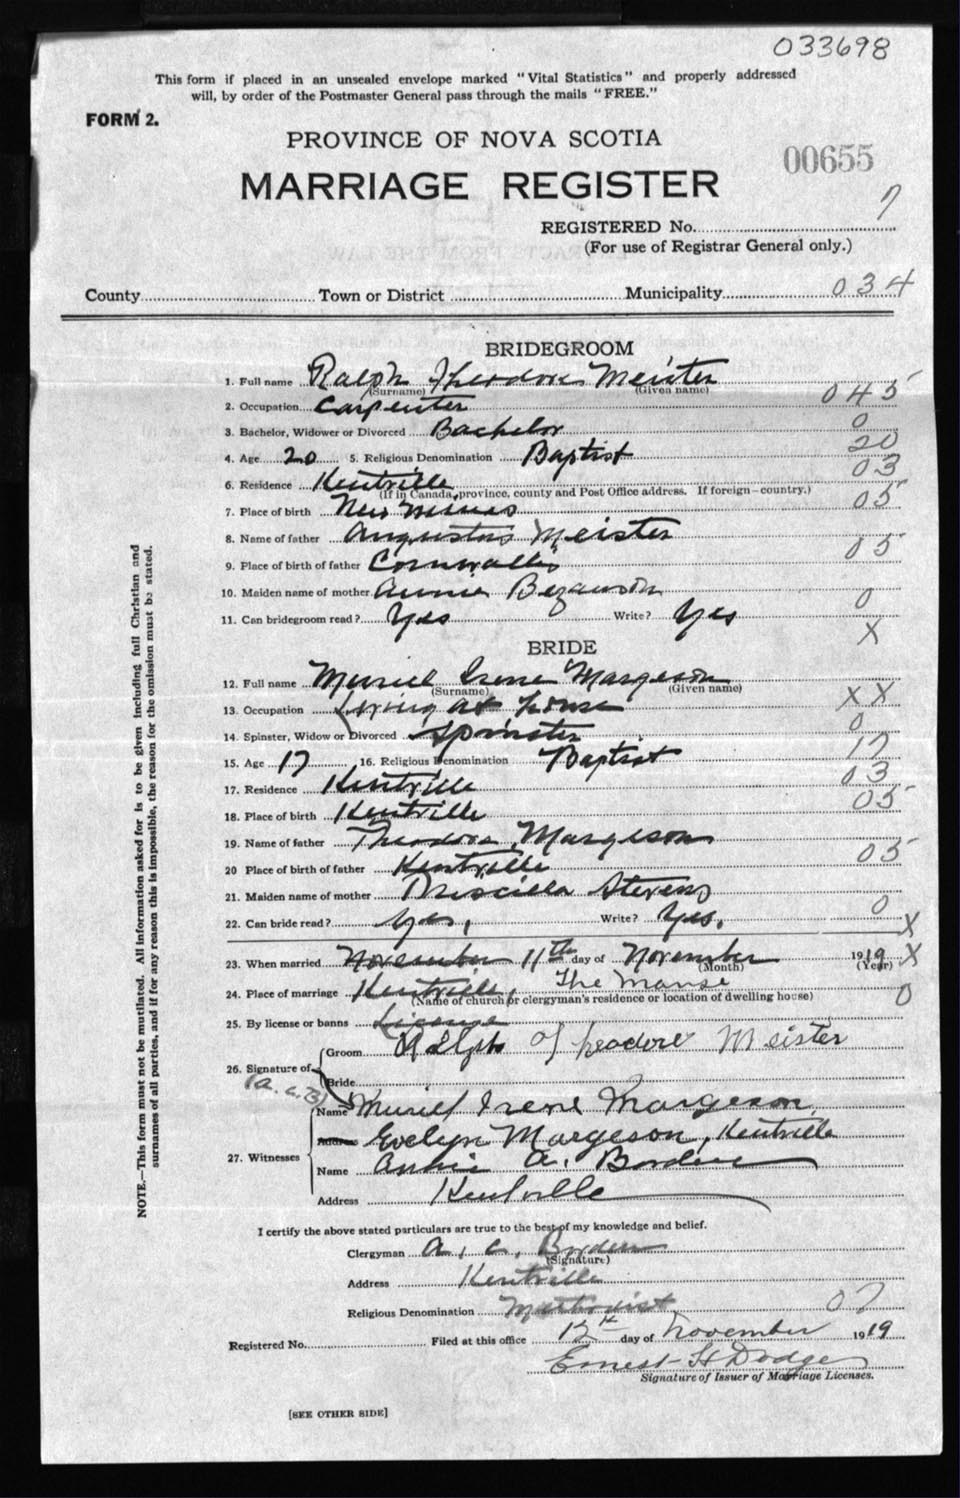 033698
This form if placed in an unsealed envelope marked "Vital Statistics" and properly addressed
will, by order of the Postmaster General pass through the mails "FREE."
FORM 2.
PROVINCE OF NOVA SCOTIA
00655
MARRIAGE REGISTER
7
REGISTERED No.
(For use of Registrar General only.)
County Town or District Municipality 034
BRIDEGROOM
1. Full name Ralph Theodore Meister
(Surname) (Given name)
045
2. Occupation Carpenter
3. Bachelor, Widower or Divorced Bachelor 0
4. Age 20 5. Religious Denomination Baptist 20
6. Residence Kentville 03
(If in Canada, province, county and Post Office address. If foreign—country.)
7. Place of birth New Minas 05
8. Name of father Augustus Meister
9. Place of birth of father Cornwallis 05
10. Maiden name of mother Annie Bezanson
11. Can bridegroom read? Yes Write? Yes 0
X
BRIDE
12. Full name Muriel Irene Margeson
(Surname) (Given name)
13. Occupation Living at home XX
14. Spinster, Widow or Divorced Spinster 0
15. Age 17 16. Religious Denomination Baptist 17
17. Residence Kentville 03
18. Place of birth Kentville 05
19. Name of father Theodore Margeson
20 Place of birth of father Kentville 05
21. Maiden name of mother Priscilla Stevens
22. Can bride read? Yes, Write? Yes. 0
X
23. When married November 11th day of November 1919 X
(Month) (Year)
24. Place of marriage Kentville, The Manse 0
(Name of church or clergyman's residence or location of dwelling house)
25. By license or banns License
26. Signature of Groom Ralph Theodore Meister
(A.C.B) Bride
Name Muriel Irene Margeson
27. Witnesses Address Evelyn Margeson, Kentville
Name Annie A. Borden
Address Kentville
I certify the above stated particulars are true to the best of my knowledge and belief.
Clergyman A. C. Borden
(Signature)
Address Kentville
Religious Denomination Methodist 07
Registered No. Filed at this office 12th day of November 1919
Ernest H Dodge
Signature of Issuer of Marriage Licenses.
[SEE OTHER SIDE]
NOTE.—This form must not be mutilated. All information asked for is to be given including full Christian and
surnames of all parties, and if for any reason this is impossible, the reason for the omission must be stated.